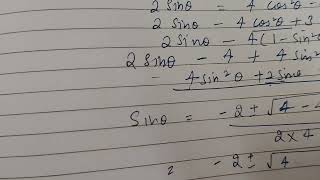 2 Sinθ = 4 cos²θ -
2 Sinθ - 4 cos²θ + 3
2 Sinθ - 4(1 - Sin²θ
2 Sinθ - 4 + 4 Sin²
4 Sin²θ + 2 Sinθ
Sinθ = - 2 ± √4 - 4
2 × 4
- 2 ± √4